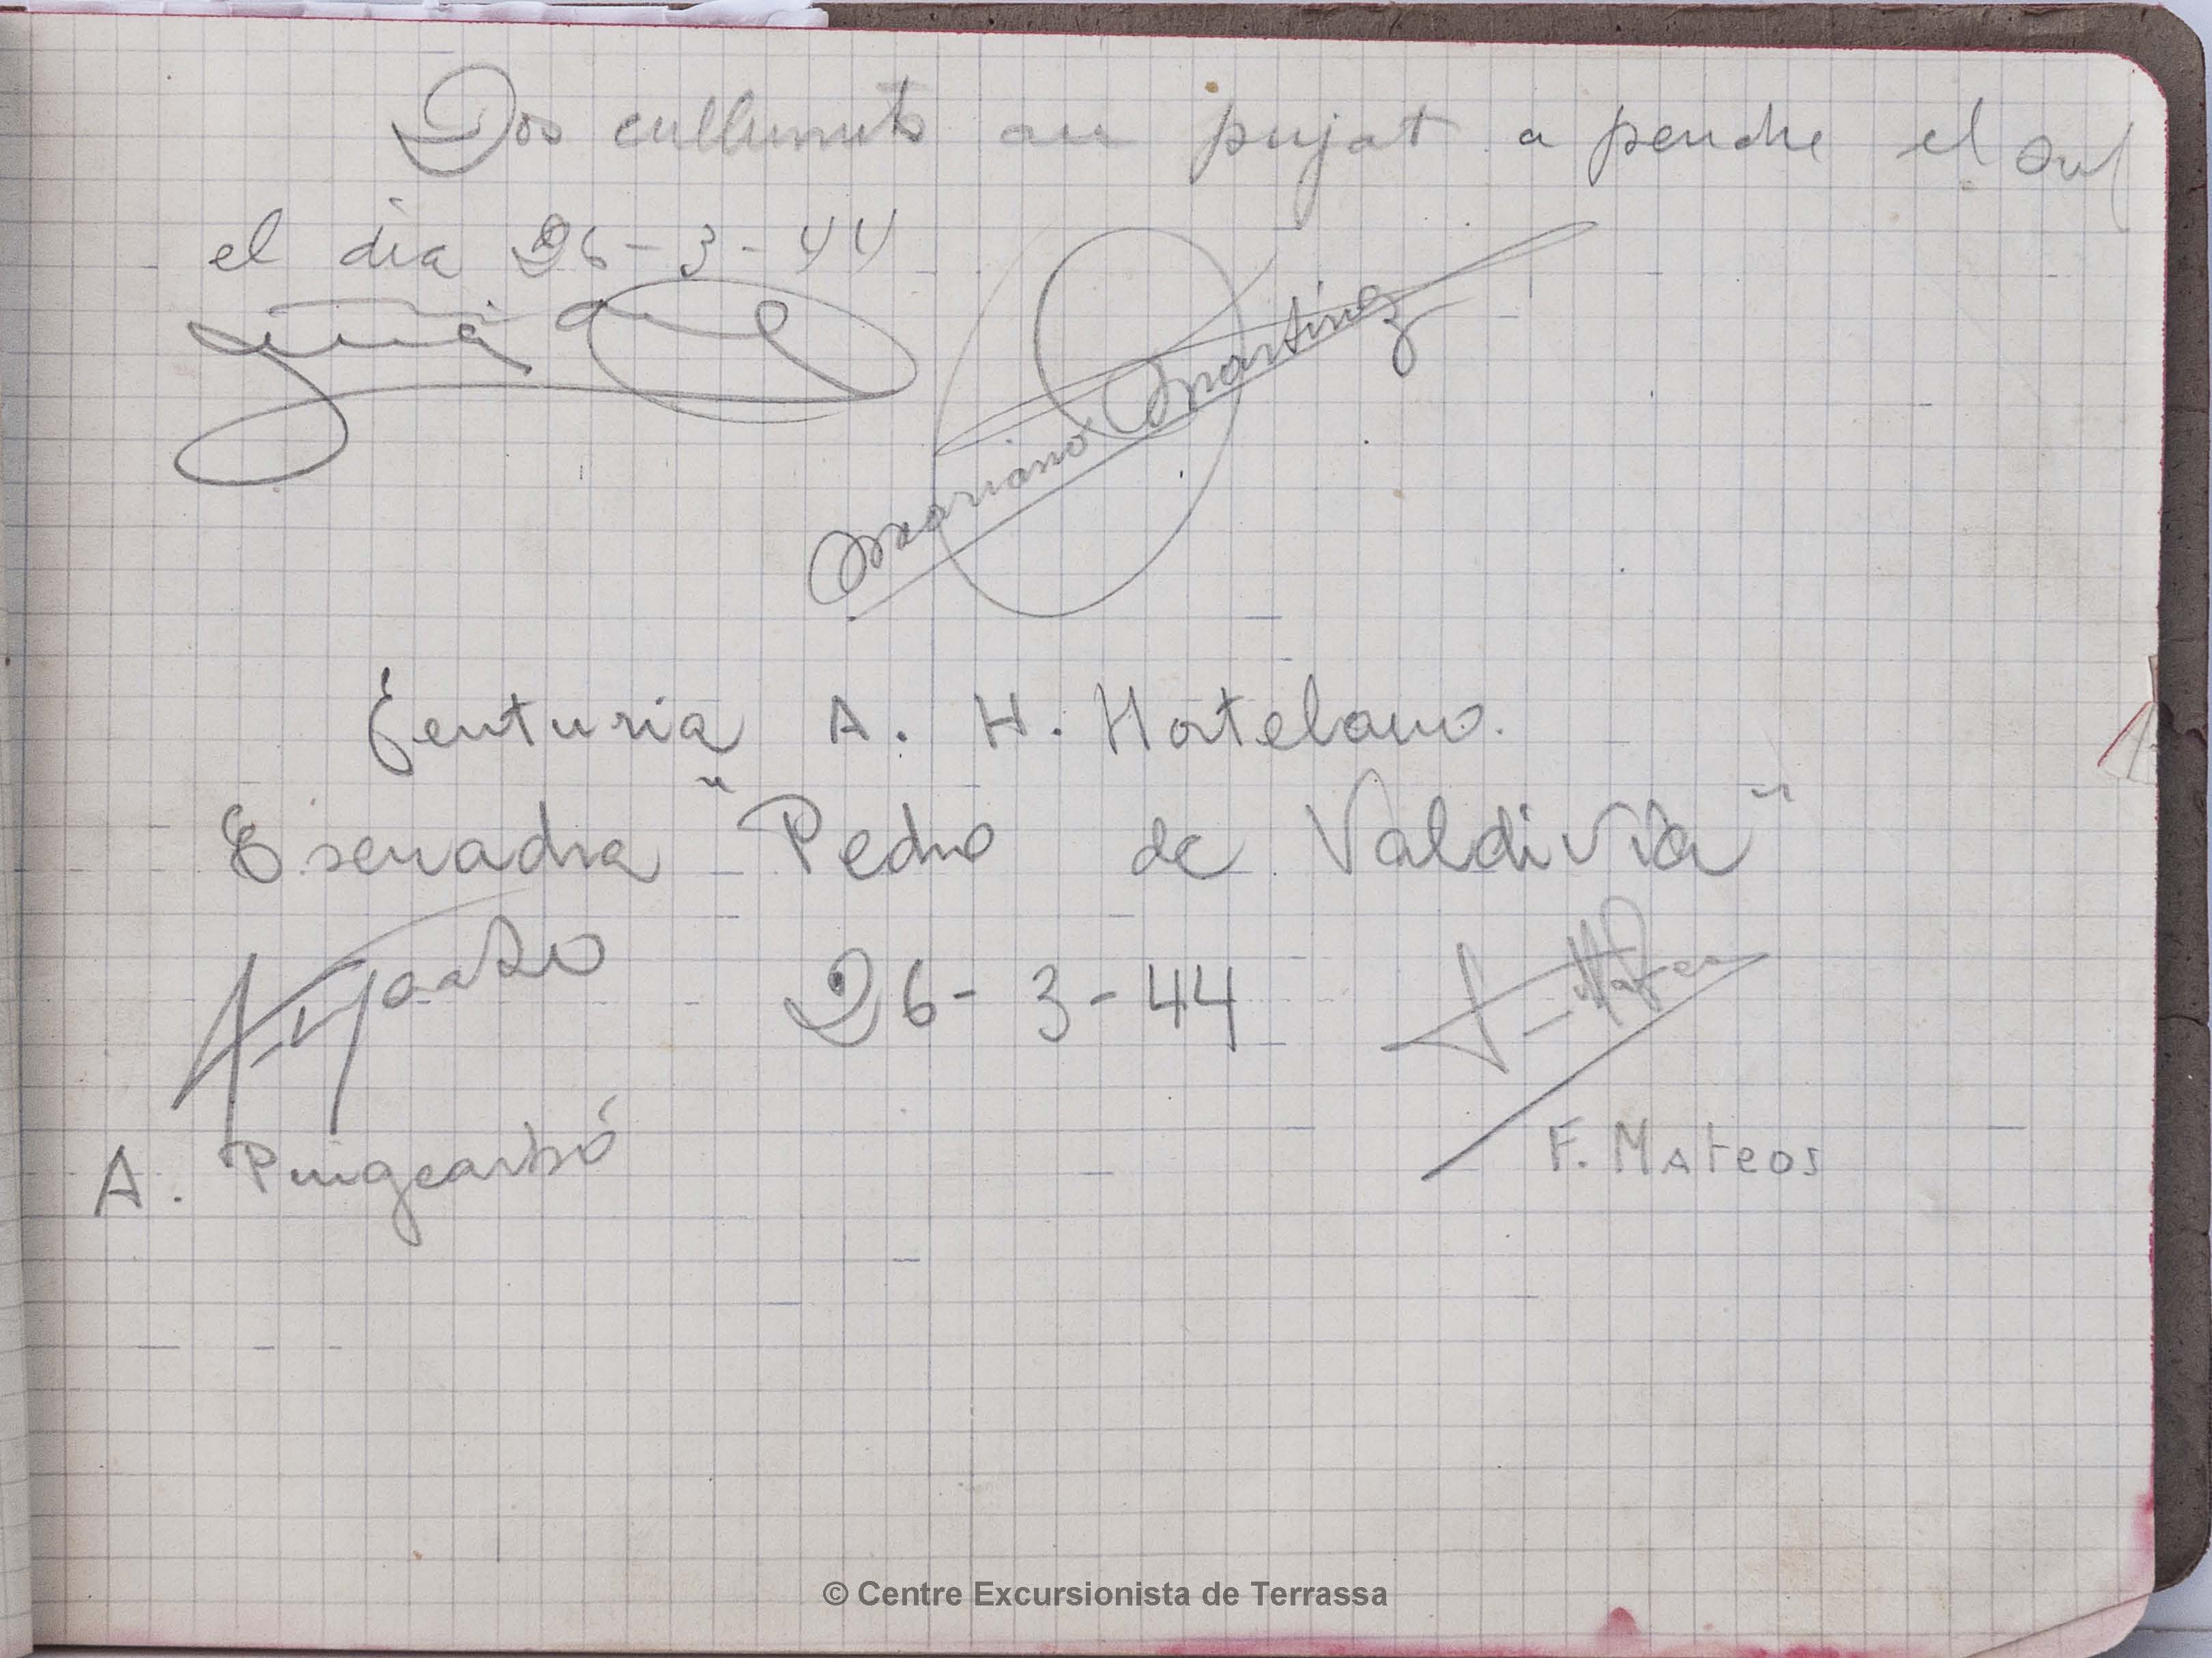 Dos cullumuts an pujat a pendre el sul
el dia 26-3-44
Mariano Martinez
Centuria A. H. Hortelano.
Escuadra "Pedro de Valdivia"
26-3-44
A. Puigcarbó
F. Mateos
© Centre Excursionista de Terrassa